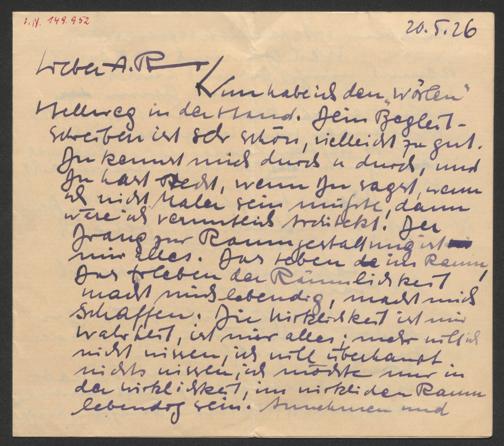 I.N. 149.952
20.5.26
Lieber A. R.
Nun habe ich den „Wörlen"
Hellweg in der Hand. Dein Begleit-
schreiben ist sehr schön, vielleicht zu gut.
Du kennst mich durch u durch, und
Du hast Recht, wenn Du sagst, wenn
ich nicht Maler sein müsste, dann
wäre ich vermutlich Architekt. Der
Drang zur Raumgestaltung ist
mir alles. Das Leben im Raum,
Das Erleben der Räumlichkeit
macht mich lebendig, macht mich
schaffen. Die Wirklichkeit ist mir
Wahrheit, ist mir alles; mehr will ich
nicht wissen, ich will überhaupt
nichts wissen, ich möchte nur in
der Wirklichkeit, im wirklichen Raum
lebendig sein. Annehmen und